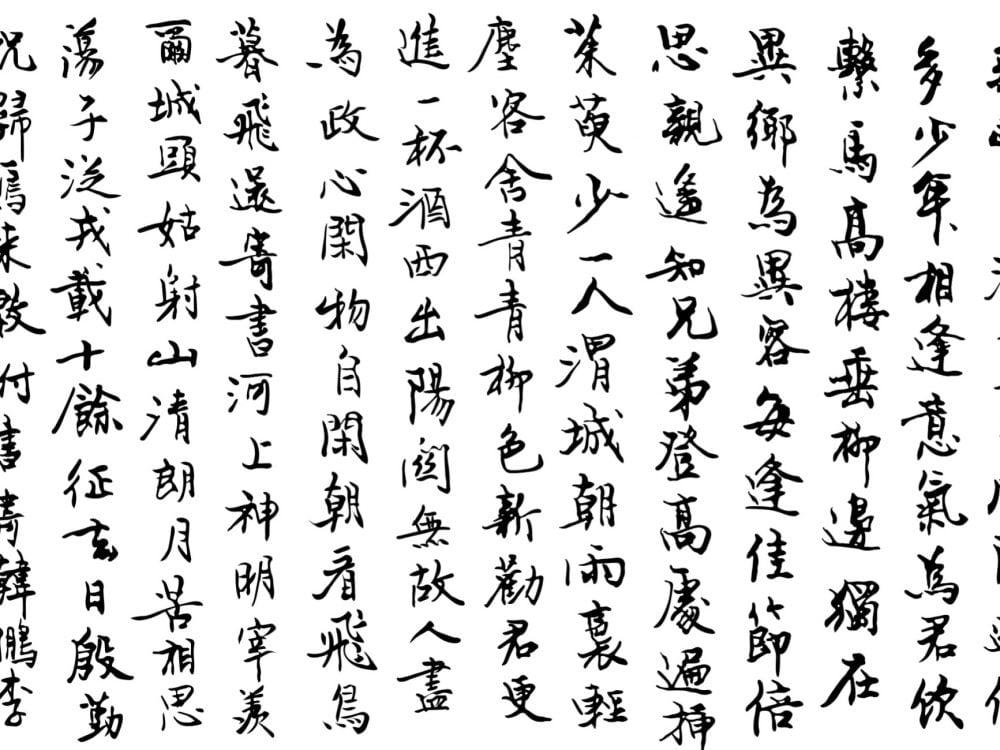 多少年相逢意氣為君飲
繫馬高樓垂柳邊獨在
異鄉為異客每逢佳節倍
思親遙知兄弟登高處遍插
茱萸少一人渭城朝雨裛輕
塵客舍青青柳色新勸君更
進一杯酒西出陽關無故人盡
為政心閑物自閑朝看飛鳥
暮飛還寄書河上神明宰羨
爾城頭姑射山清朗月苦相思
蕩子從戎載十餘征去日殷勤
歸鴈來付書寄韓鵬李